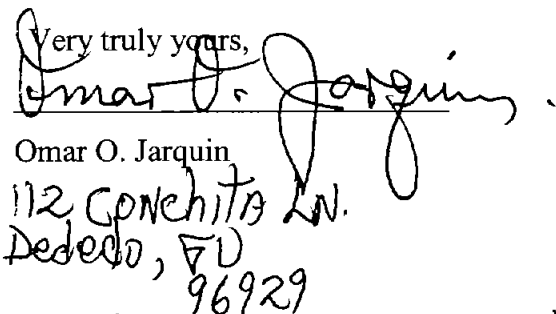 Very truly yours,
Omar O. Jarquin.
Omar O. Jarquin
112 CONchiTA LN.
Dededo, GU
96929